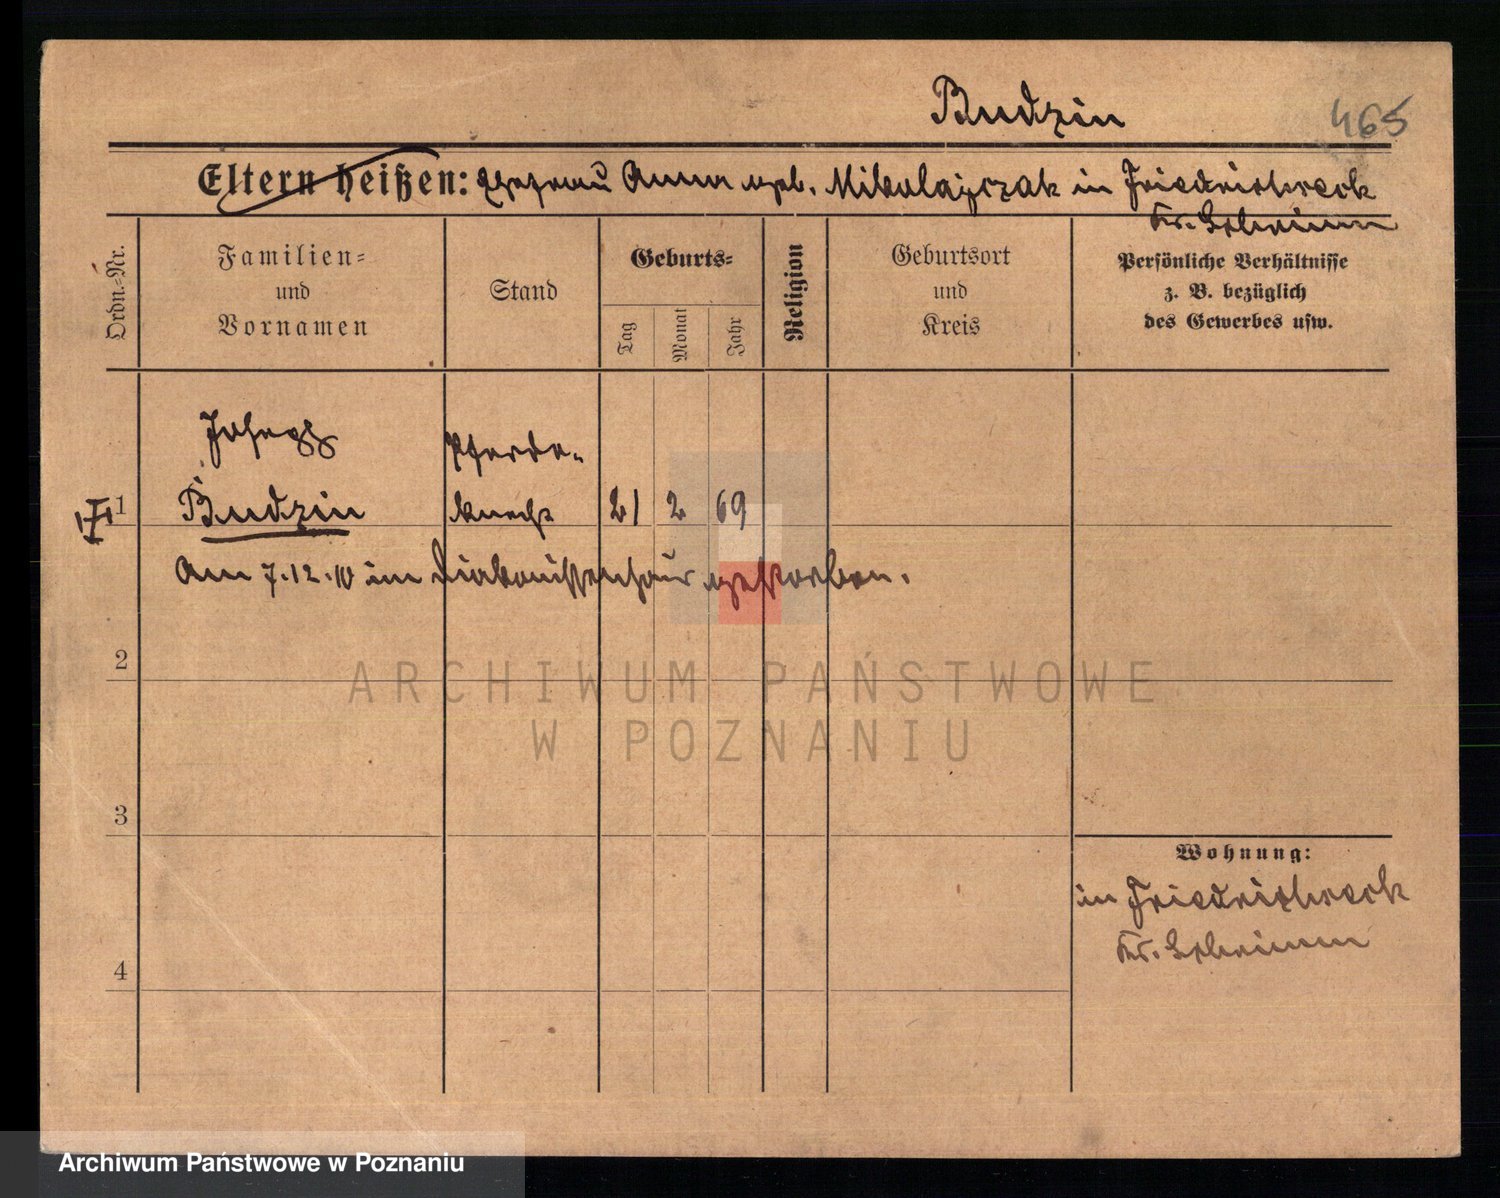 Budzin
465
Eltern heißen: Ehefrau Anna geb. Mikolajczak in Friedrichseck
Kr. Schrimm
Ordn.-Nr.
Familien-
und
Vornamen
Stand
Geburts-
Tag
Monat
Jahr
Religion
Geburtsort
und
Kreis
Persönliche Verhältnisse
z. B. bezüglich
des Gewerbes usw.
Joseph
Pferde-
1
Budzin
knecht
21
2
69
Am 7.12.10 im Diakonissenhaus gestorben.
2
ARCHIWUM PAŃSTWOWE
W POZNANIU
3
Wohnung:
in Friedrichseck
Kr. Schrimm
4
Archiwum Państwowe w Poznaniu